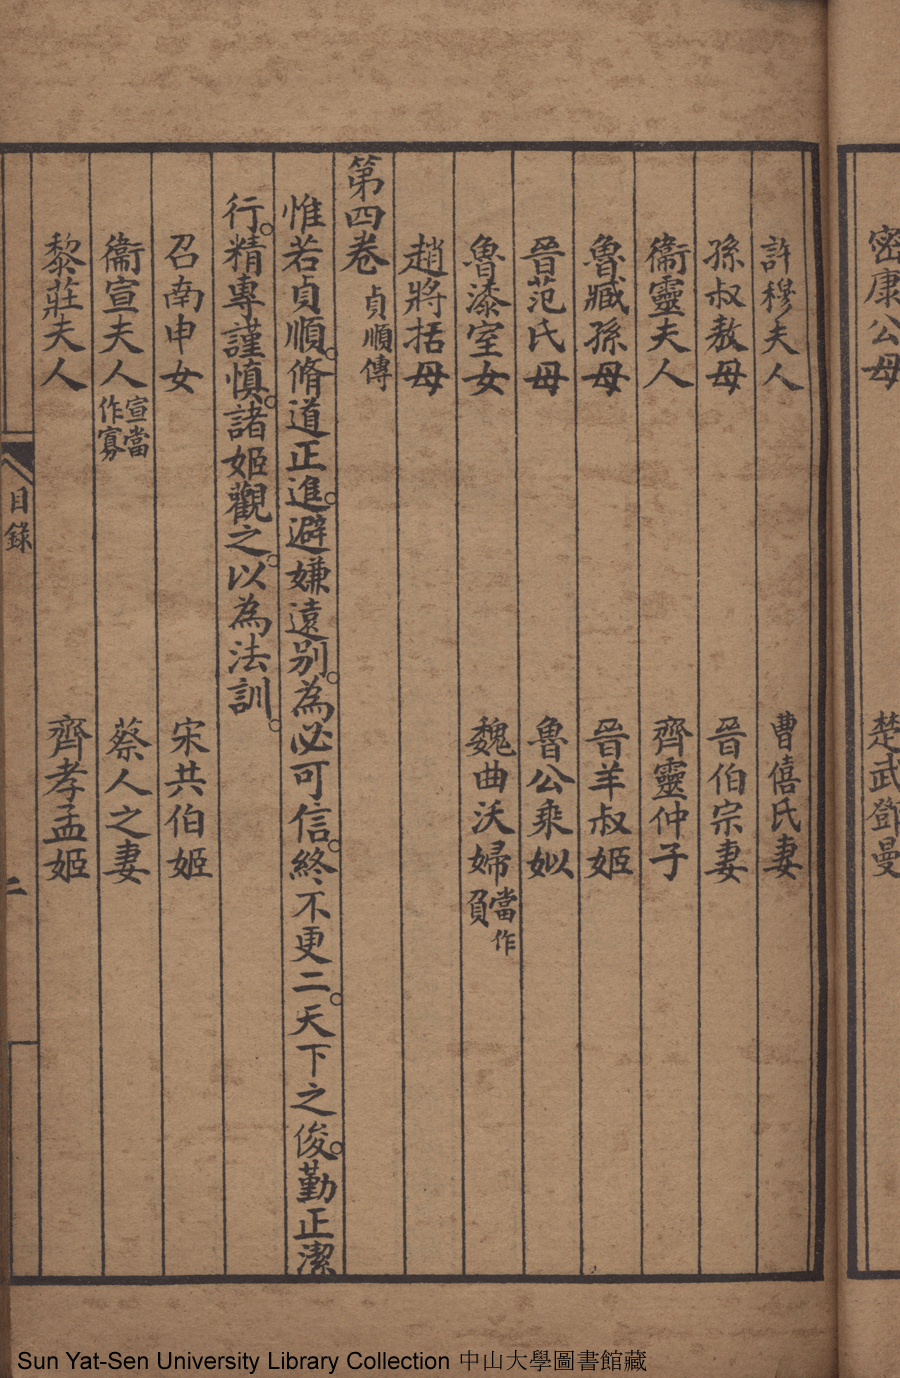 密康公母 楚武鄧曼
許穆夫人 曹僖氏妻
孫叔敖母 晉伯宗妻
衞靈夫人 齊靈仲子
魯臧孫母 晉羊叔姬
晉范氏母 魯公乘姒
魯漆室女 魏曲沃婦當作負
趙將括母
第四卷 貞順傳
惟若貞順。脩道正進。避嫌遠别。為必可信。終不更二。天下之俊。勤正潔
行。精專謹慎。諸姬觀之。以為法訓。
召南申女 宋共伯姬
衞宣夫人宣當作寡 蔡人之妻
黎莊夫人 齊孝孟姬
目錄 二
Sun Yat-Sen University Library Collection 中山大學圖書館藏